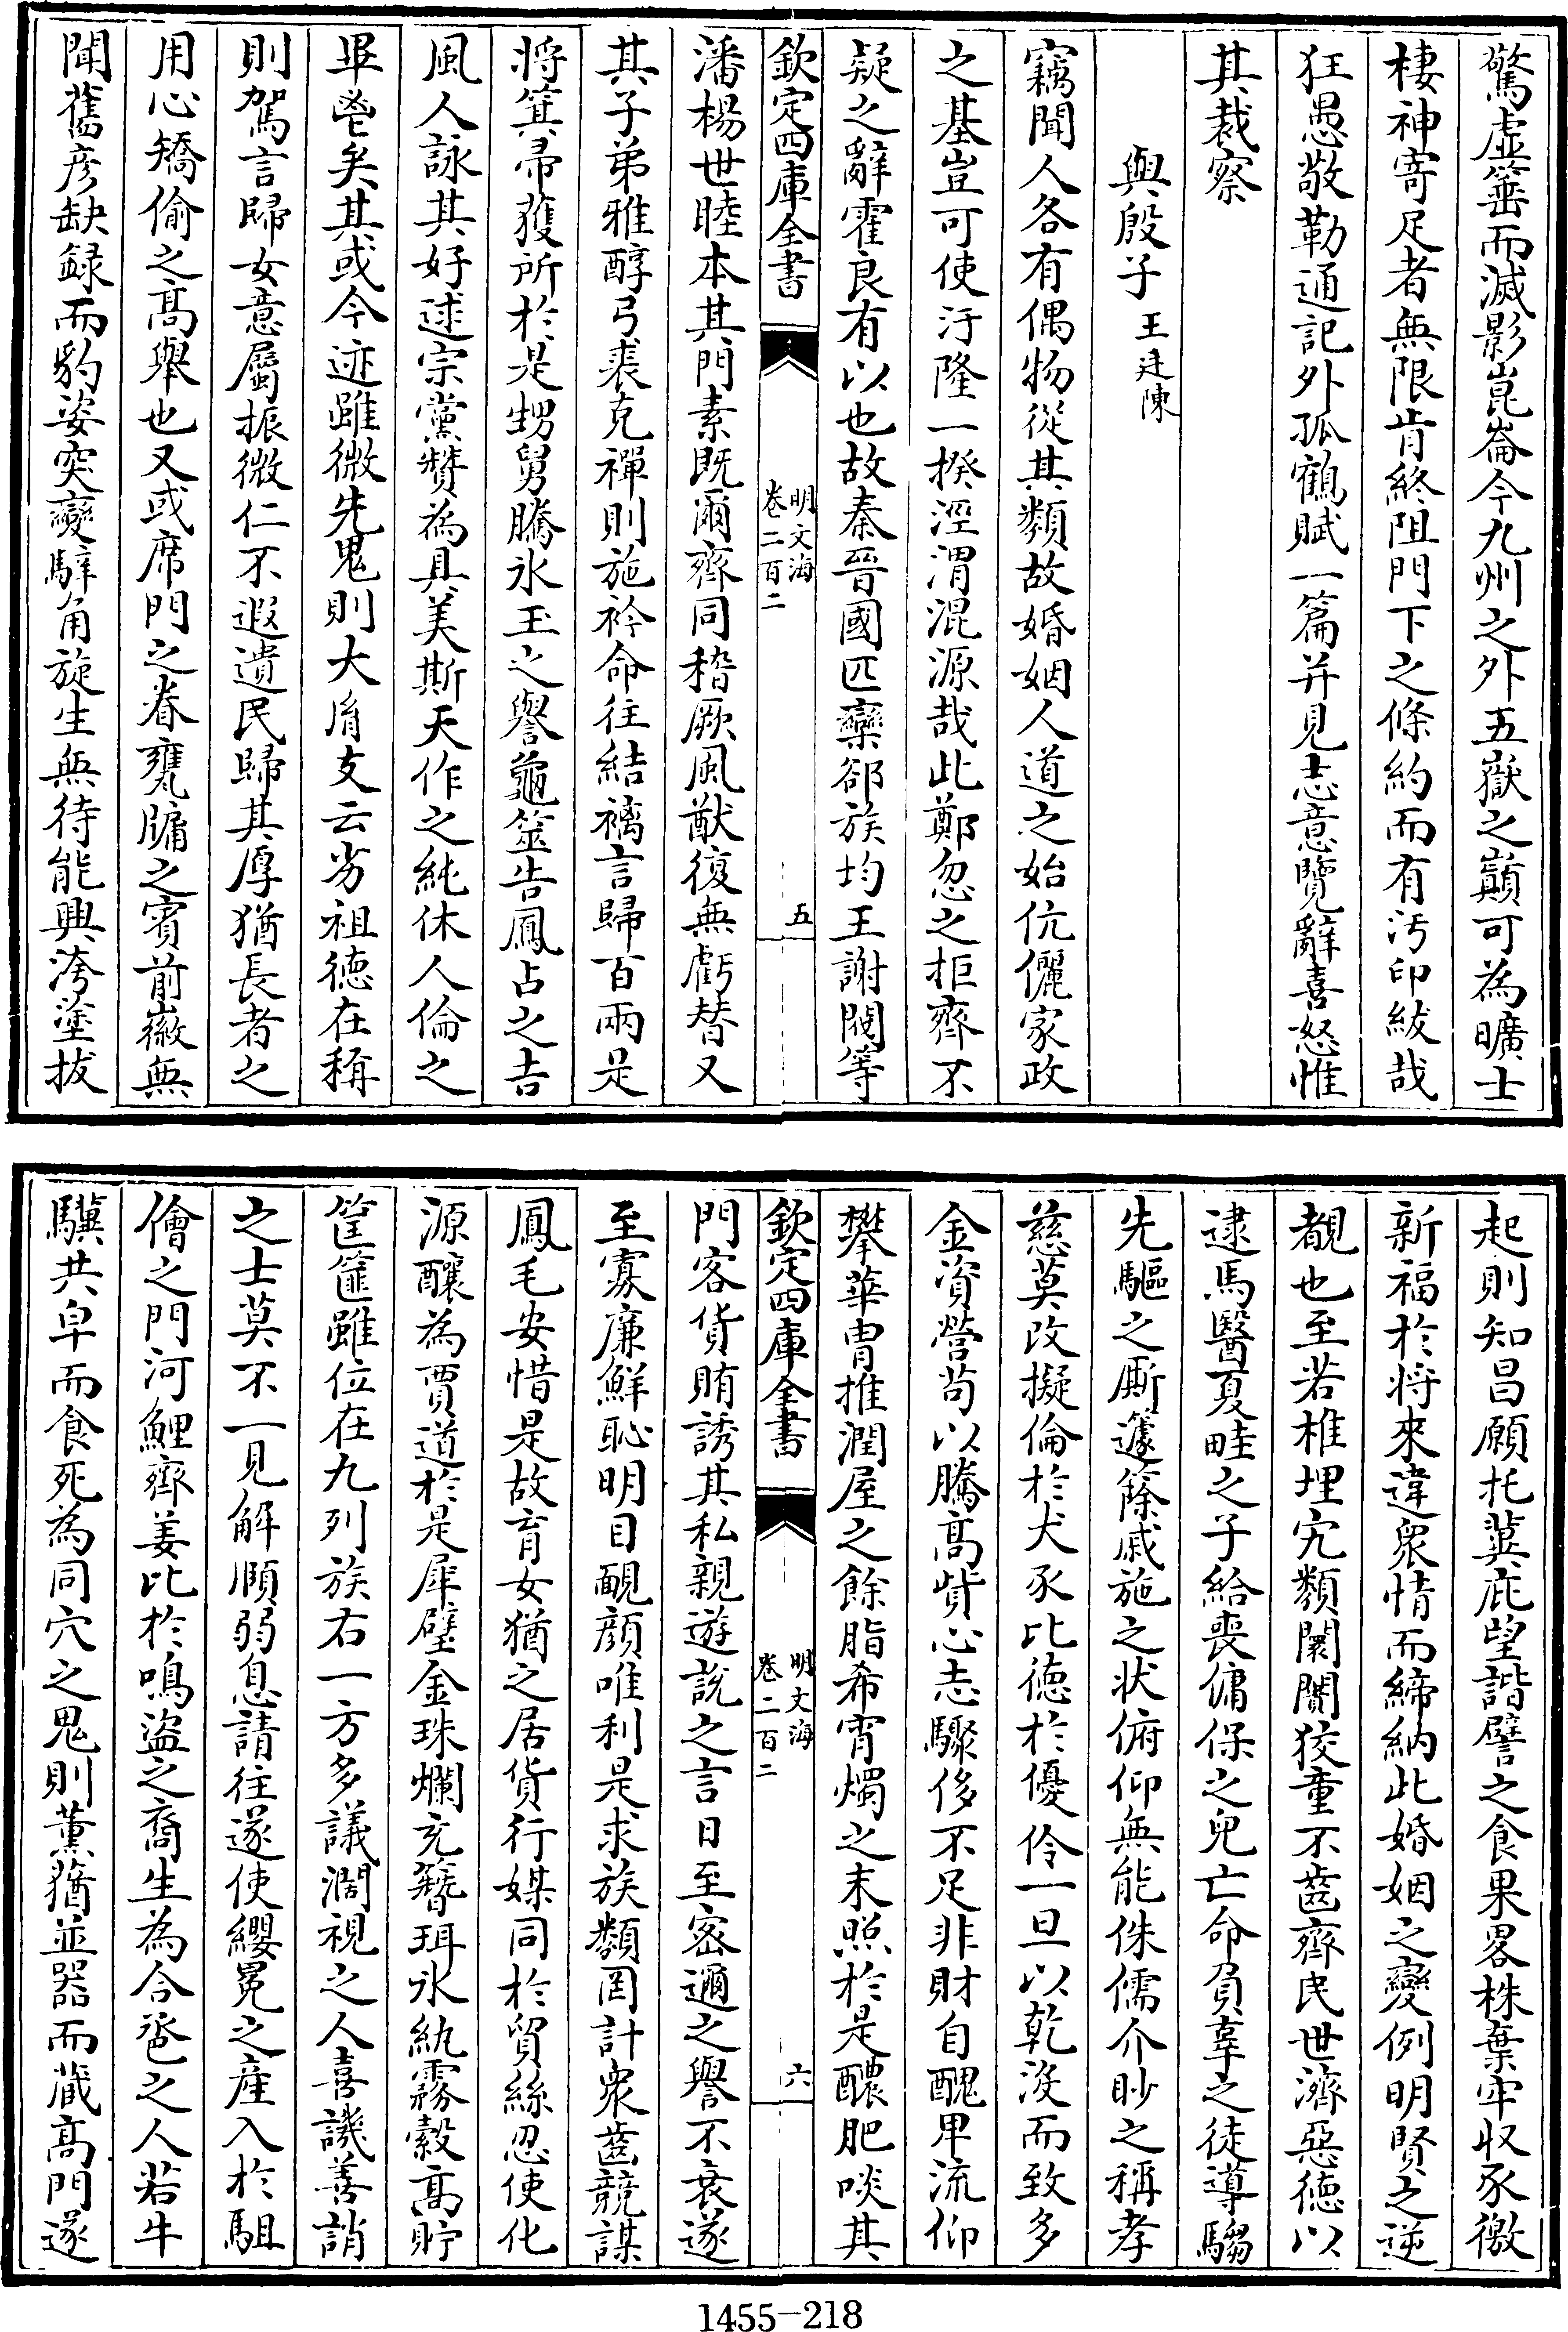 驚虚箠而滅影崑崙今九州之外五嶽之巔可為曠士
棲神寄足者無限肯終阻門下之條約而有汚印紱哉
狂愚敬勒通記外孤鶴賦一篇并見志意覽辭喜怒惟
其裁察
與殷子 王廷陳
竊聞人各有偶物從其類故婚姻人道之始伉儷家政
之基豈可使汙隆一揆涇渭混源哉此鄭忽之拒齊不
疑之辭霍良有以也故秦晉國匹欒郤族均王謝閥等
欽定四庫全書 明文海 卷二百二 五
潘楊世睦本其門素既爾齊同稽厥風猷復無虧替又
其子弟雅醇弓裘克禪則施衿命往結褵言歸百兩是
將箕帚獲所於是甥舅騰氷玉之譽龜筮告鳳占之吉
風人詠其好逑宗黨贊為具美斯天作之純休人倫之
畢鬯矣其或今迹雖微先鬼則大胄支云劣祖德在稱
則駕言歸女意屬振微仁不遐遺民歸其厚猶長者之
用心矯偷之高舉也又或席門之眷甕牖之賓前徽無
聞舊彦缺録而豹姿突變騂角旋生無待能興洿塗拔
起則知昌願托冀庇望諧譬之食果畧株棄牢收豕徼
新福於将來違衆情而締納此婚姻之變例明賢之逆
覩也至若椎埋宄類闤闠狡童不齒齊民世濟惡德以
逮馬醫夏畦之子給喪傭保之兒亡命負辜之徒導騶
先驅之厮籧篨戚施之状俯仰無能侏儒介眇之稱孝
慈莫改擬倫於犬豕比德於優伶一旦以乾没而致多
金資營苟以騰高貲心志驟侈不足非財自醜卑流仰
攀華胄推潤屋之餘脂希宵燭之末照於是醲肥啖其
欽定四庫全書 明文海 卷二百二 六
門客貨賄誘其私親遊說之言日至密邇之譽不衰遂
至寡廉鮮恥明目靦顔唯利是求族類罔計衆齒競謀
鳳毛安惜是故育女猶之居貨行媒同於貿絲忍使化
源釀為賈道於是犀璧金珠爛充簪珥氷紈霧縠高貯
筐篚雖位在九列族右一方多議濶視之人喜譏善誚
之士莫不一見解順弱息請往遂使纓冕之産入於駔
儈之門河鯉齊姜比於鳴盜之裔生為合卺之人若牛
驥共皁而食死為同穴之鬼則薰蕕並器而蔵高門遂
1455-218